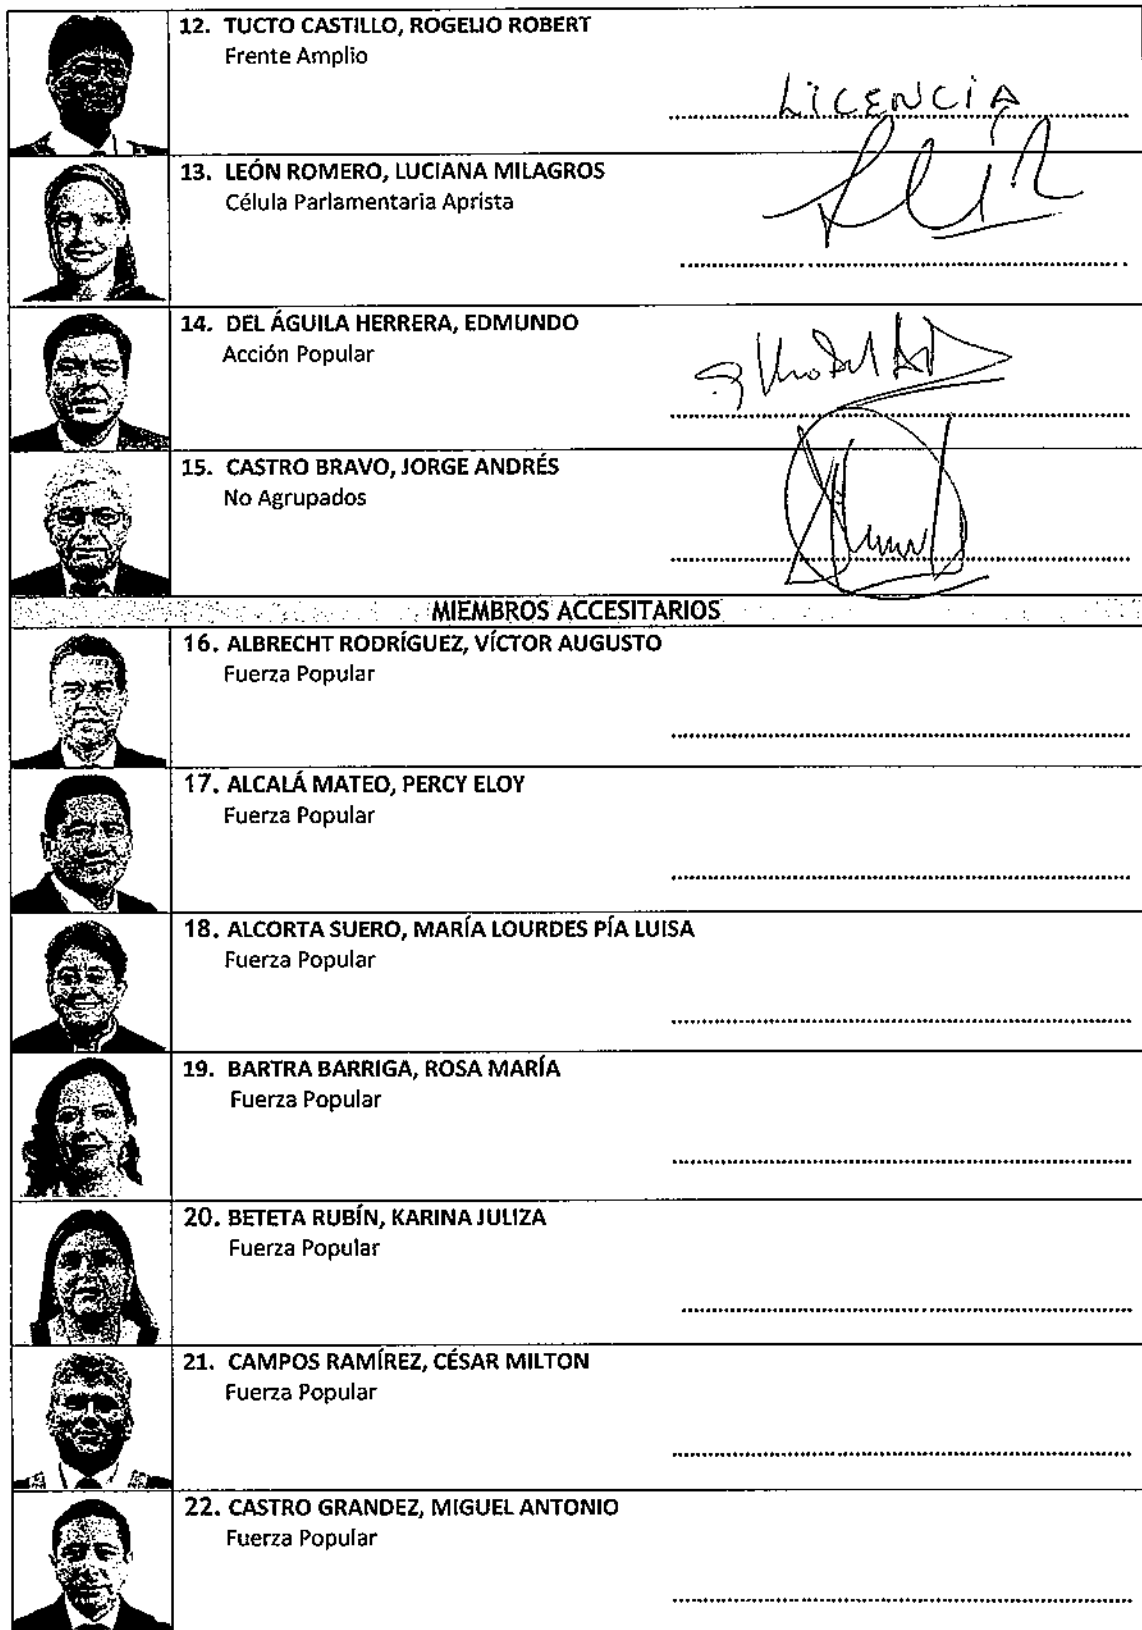 12. TUCTO CASTILLO, ROGELIO ROBERT
Frente Amplio
LICENCIA
13. LEÓN ROMERO, LUCIANA MILAGROS
Célula Parlamentaria Aprista
14. DEL ÁGUILA HERRERA, EDMUNDO
Acción Popular
15. CASTRO BRAVO, JORGE ANDRÉS
No Agrupados
MIEMBROS ACCESITARIOS
16. ALBRECHT RODRÍGUEZ, VÍCTOR AUGUSTO
Fuerza Popular
17. ALCALÁ MATEO, PERCY ELOY
Fuerza Popular
18. ALCORTA SUERO, MARÍA LOURDES PÍA LUISA
Fuerza Popular
19. BARTRA BARRIGA, ROSA MARÍA
Fuerza Popular
20. BETETA RUBÍN, KARINA JULIZA
Fuerza Popular
21. CAMPOS RAMÍREZ, CÉSAR MILTON
Fuerza Popular
22. CASTRO GRANDEZ, MIGUEL ANTONIO
Fuerza Popular